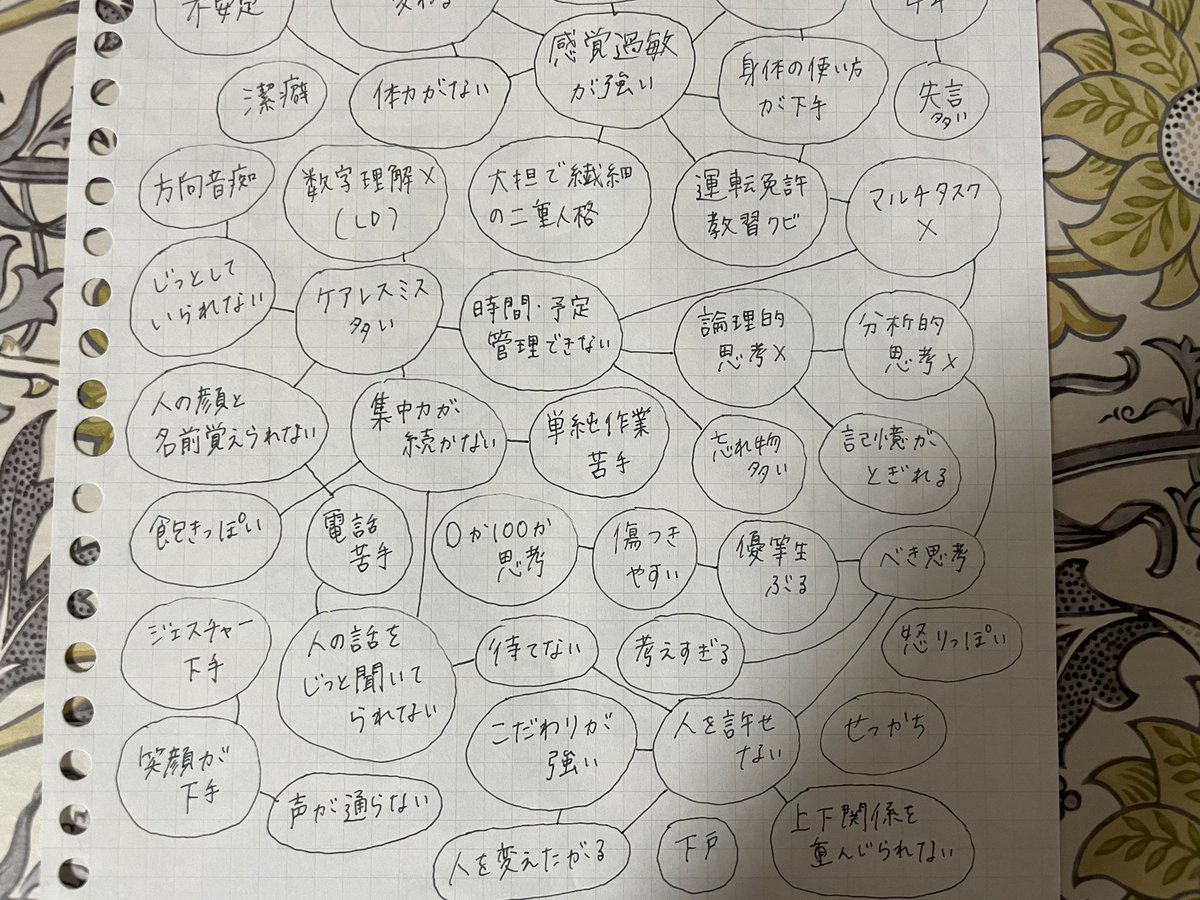 不安定
変わる
感覚過敏
が強い
身体の使い方
が下手
失言
多い
潔癖
体力がない
方向音痴
数字理解×
(LD)
大担で繊細
の二重人格
運転免許
教習クビ
マルチタスク
×
じっとして
いられない
ケアレスミス
多い
時間・予定
管理できない
論理的
思考×
分析的
思考×
人の顔と
名前覚えられない
集中力が
続かない
単純作業
苦手
忘れ物
多い
記憶が
とぎれる
飽きっぽい
電話
苦手
0か100か
思考
傷つき
やすい
優等生
ぶる
べき思考
ジェスチャー
下手
人の話を
じっと聞いて
られない
待てない
考えすぎる
怒りっぽい
笑顔が
下手
こだわりが
強い
人を許せ
ない
せっかち
声が通らない
人を変えたがる
下戸
上下関係を
重んじられない